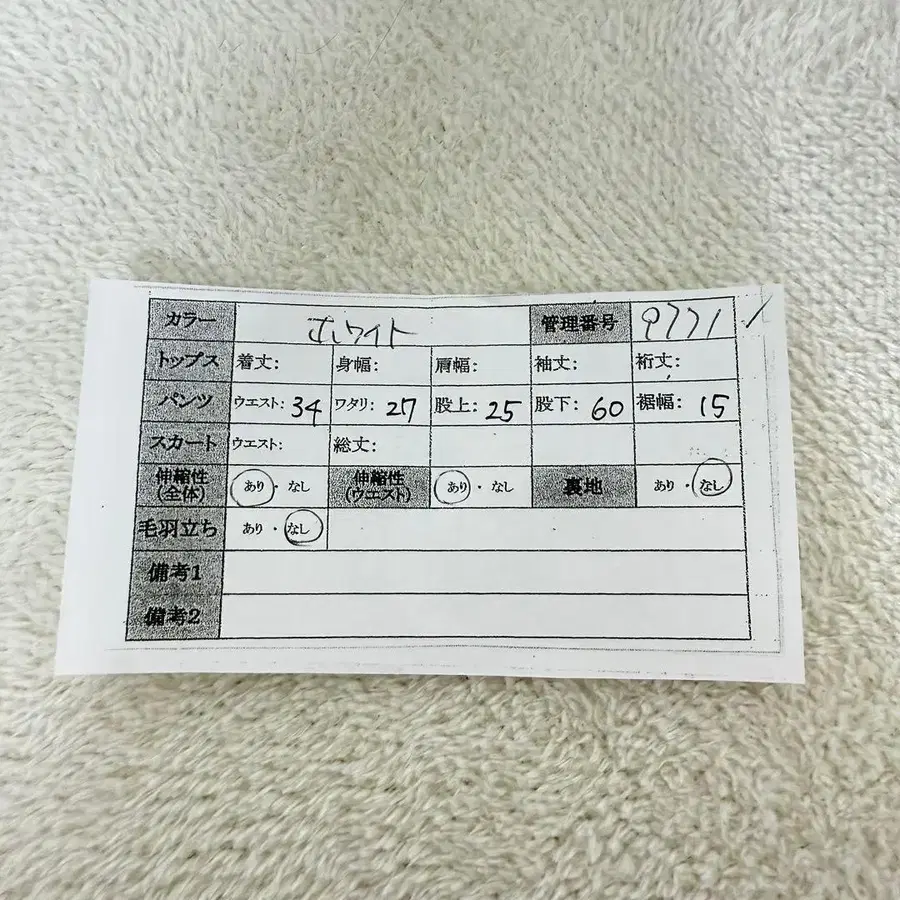 カラー ホワイト 管理番号 9771
トップス 着丈: 身幅: 肩幅: 袖丈: 裄丈:
パンツ ウエスト: 34 ワタリ: 27 股上: 25 股下: 60 裾幅: 15
スカート ウエスト: 総丈:
伸縮性(全体) あり・なし 伸縮性(ウエスト) あり・なし 裏地 あり・なし
毛羽立ち あり・なし
備考1
備考2